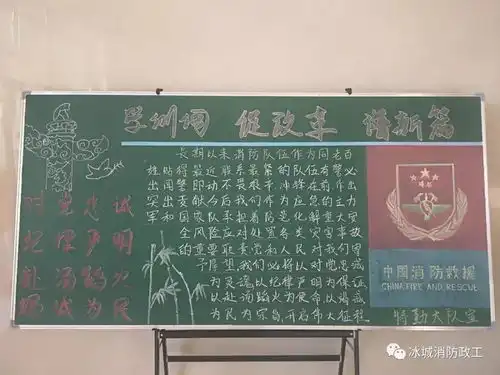 学训词 促改革 谱新篇
对党忠诚
纪律严明
赴汤蹈火
竭诚为民
长期以来消防队伍作为同老百
姓贴得最近联系最紧的队伍有警必
出闻警即动不畏艰辛冲锋在前作出
突出贡献今后我们作为应急的主力
军和国家队承担着防范化解重大安
全风险应对处置各类灾害事故
的重要职责党和人民对我们寄
予厚望我们必将以对党忠诚
为灵魂以纪律严明为保证
以赴汤蹈火为使命以竭诚
为民为宗旨开启伟大征程
中国消防救援
CHINA FIRE AND RESCUE
特勤大队宣
冰城消防政工